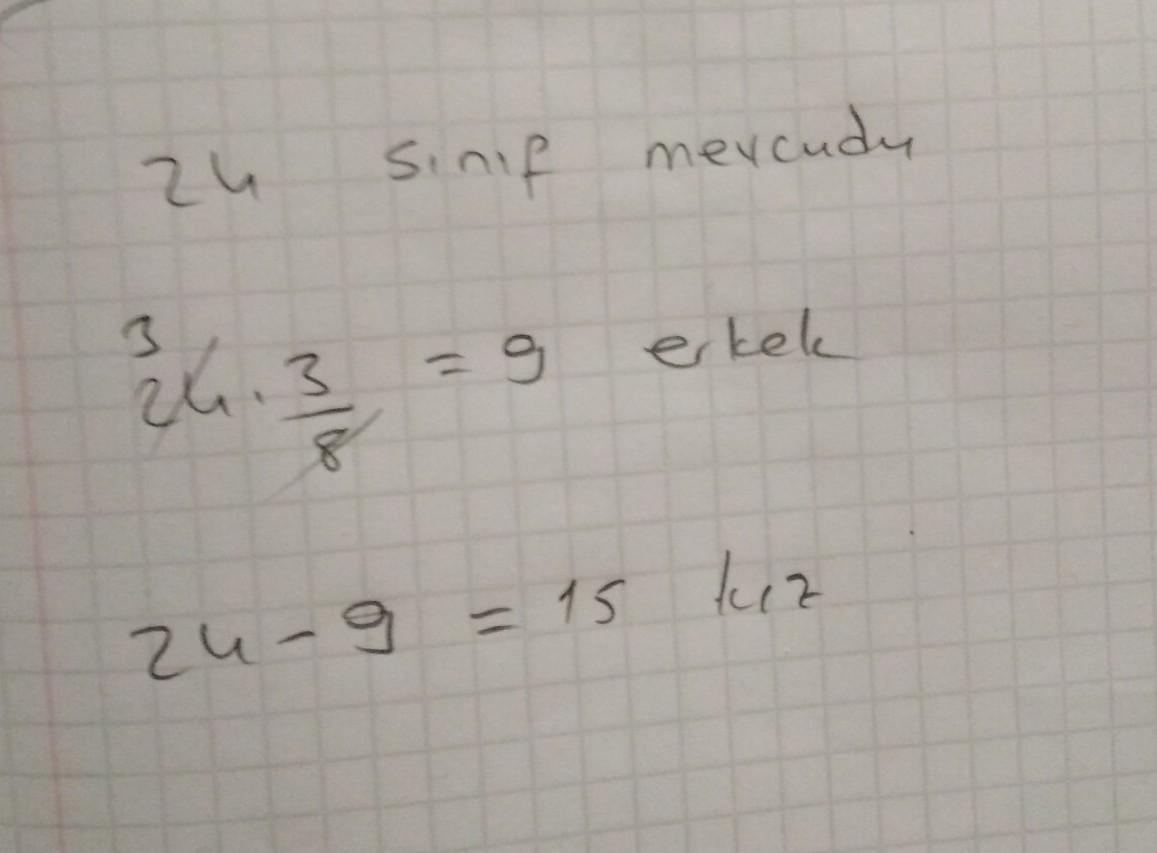 24 sınıf mevcudu
3
24 . 3/8 = 9 erkek
24 - 9 = 15 kız